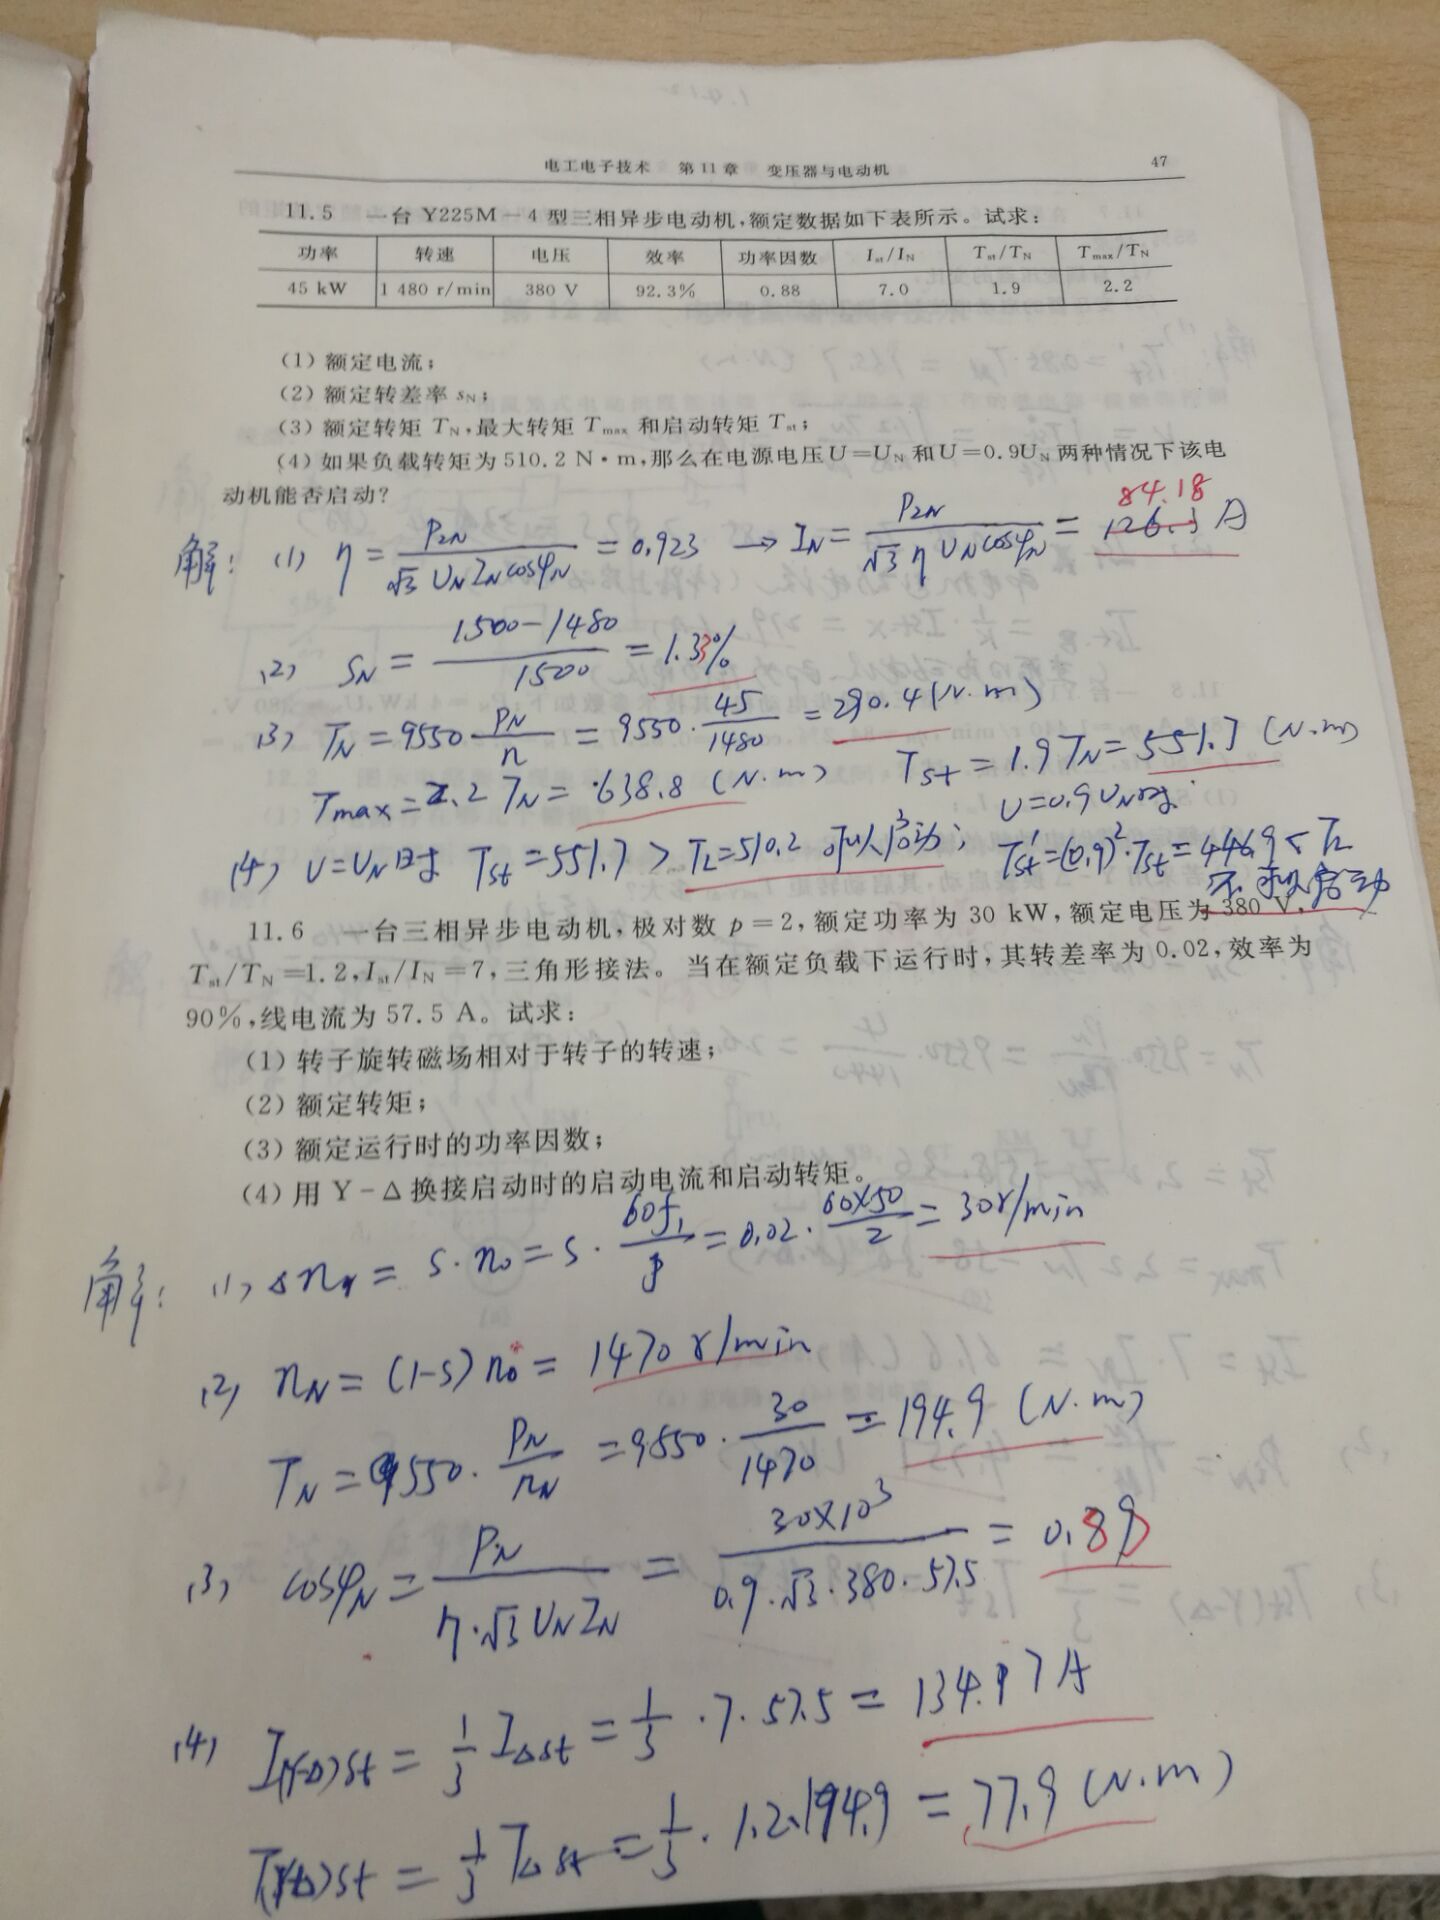 电工电子技术 第11章 变压器与电动机 47
11.5 一台 Y225M-4 型三相异步电动机,额定数据如下表所示。试求:
功率 转速 电压 效率 功率因数 Ist/IN Tst/TN Tmax/TN
45 kW 1 480 r/min 380 V 92.3% 0.88 7.0 1.9 2.2
(1) 额定电流;
(2) 额定转差率 sN;
(3) 额定转矩 TN,最大转矩 Tmax 和启动转矩 Tst;
(4) 如果负载转矩为 510.2 N·m,那么在电源电压 U=UN 和 U=0.9UN 两种情况下该电
动机能否启动?
84.18
解: (1) η = P2N / (√3 UN IN cosφN) = 0.923 → IN = P2N / (√3 η UN cosφN) = 126.3 A
(2) SN = (1500-1480) / 1500 = 1.33%
(3) TN = 9550 PN/n = 9550 · 45/1480 = 290.4 (N·m)
Tmax = 2.2 TN = 638.8 (N·m) Tst = 1.9 TN = 551.7 (N·m)
U=0.9UN时
(4) U=UN时 Tst = 551.7 > TL = 510.2 可以启动; Tst' = (0.9)²·Tst = 446.9 < TL
不可以启动
11.6 一台三相异步电动机,极对数 p=2,额定功率为 30 kW,额定电压为 380 V,
Tst/TN=1.2,Ist/IN=7,三角形接法。当在额定负载下运行时,其转差率为 0.02,效率为
90%,线电流为 57.5 A。试求:
(1) 转子旋转磁场相对于转子的转速;
(2) 额定转矩;
(3) 额定运行时的功率因数;
(4) 用 Y-Δ 换接启动时的启动电流和启动转矩。
解: (1) Δn = s·n0 = s · 60f1/p = 0.02 · 60×50/2 = 30r/min
(2) nN = (1-s) n0 = 1470 r/min
TN = 9550 · PN/nN = 9550 · 30/1470 = 194.9 (N·m)
(3) cosφN = PN / (η·√3 UN IN) = 30×10³ / (0.9·√3·380·57.5) = 0.89
(4) I(Y-Δ)st = 1/3 IΔst = 1/3 · 7 · 57.5 = 134.17 A
T(Y-Δ)st = 1/3 TΔst = 1/3 · 1.2 · 194.9 = 77.9 (N·m)